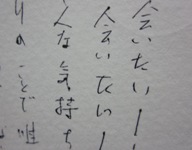 会いたい！
人会いたい！
人な気持ち
りのことで唯